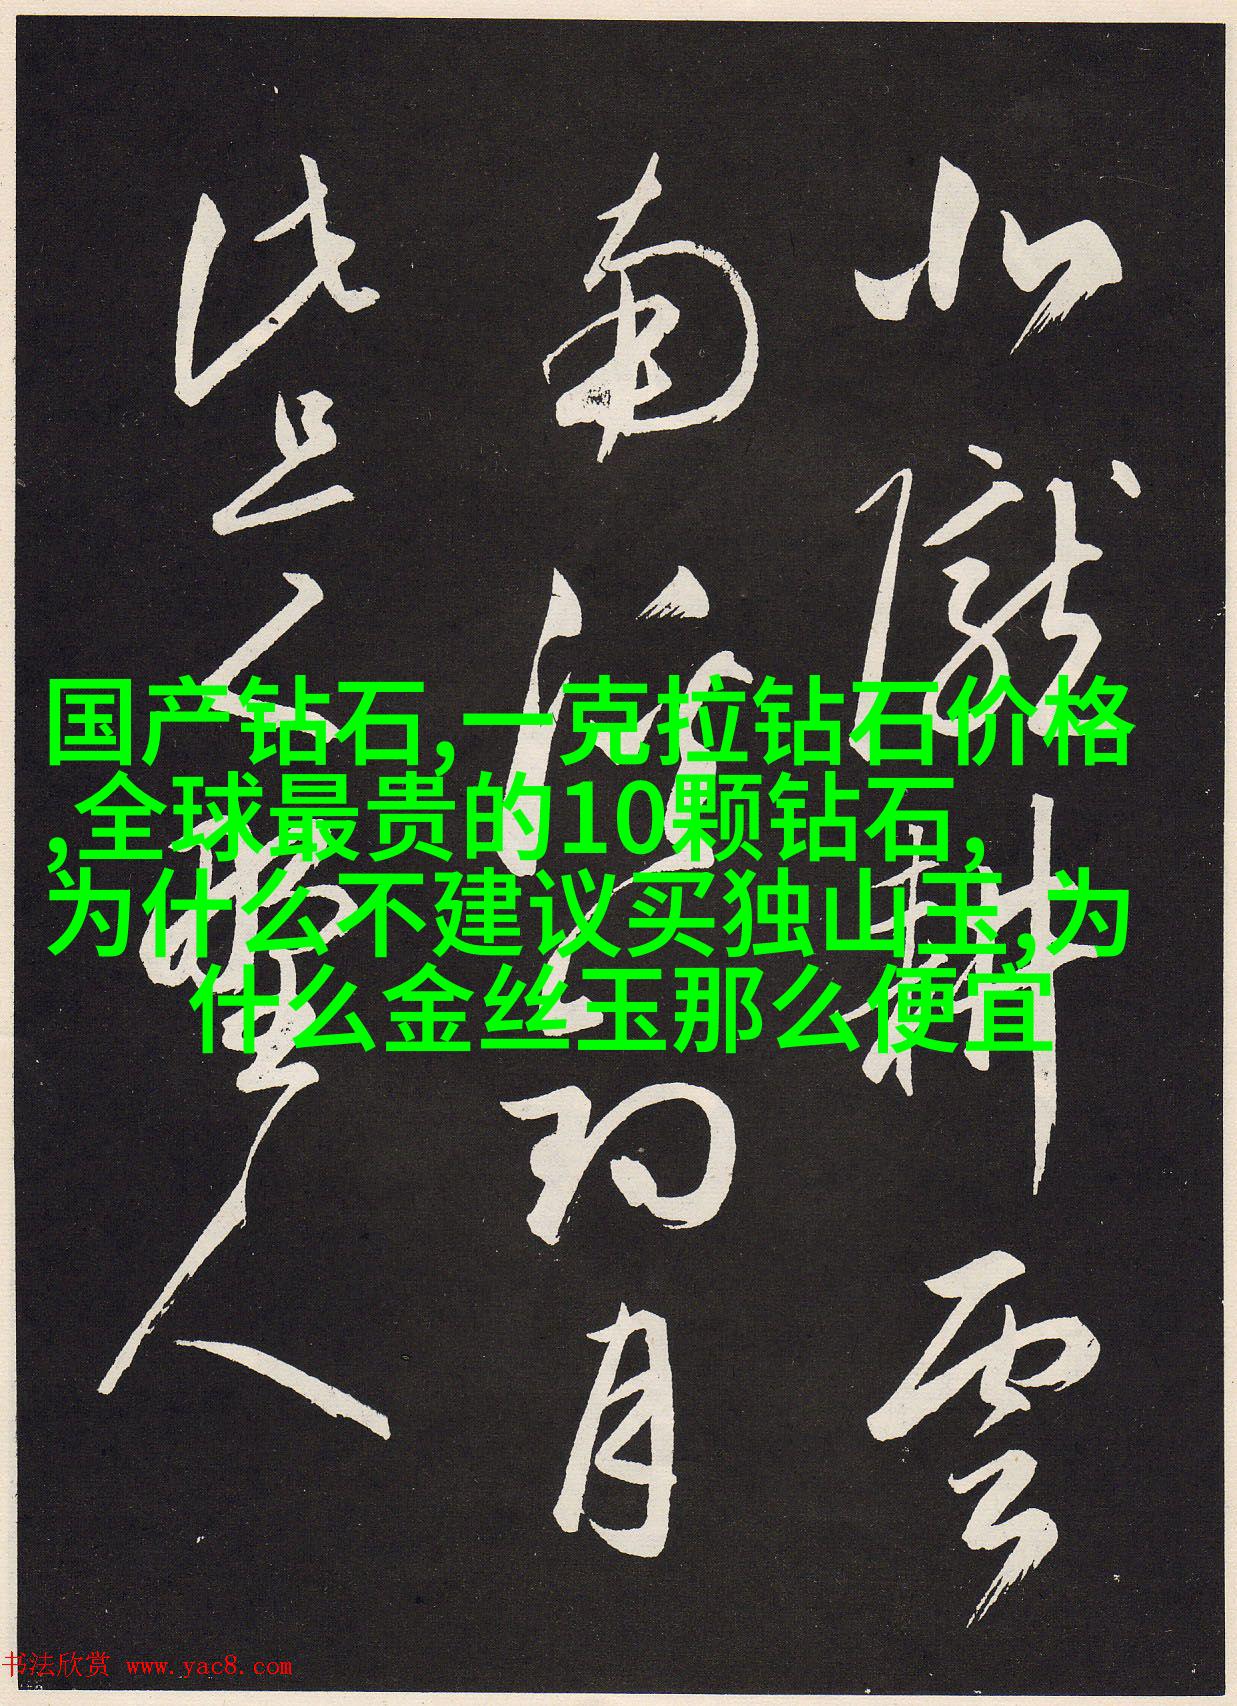 北隴耕雲
南溪釣月
此是野人
国产钻石,一克拉钻石价格
,全球最贵的10颗钻石,
为什么不建议买独山玉,为
什么金丝玉那么便宜
书法欣赏 www.yac8.com